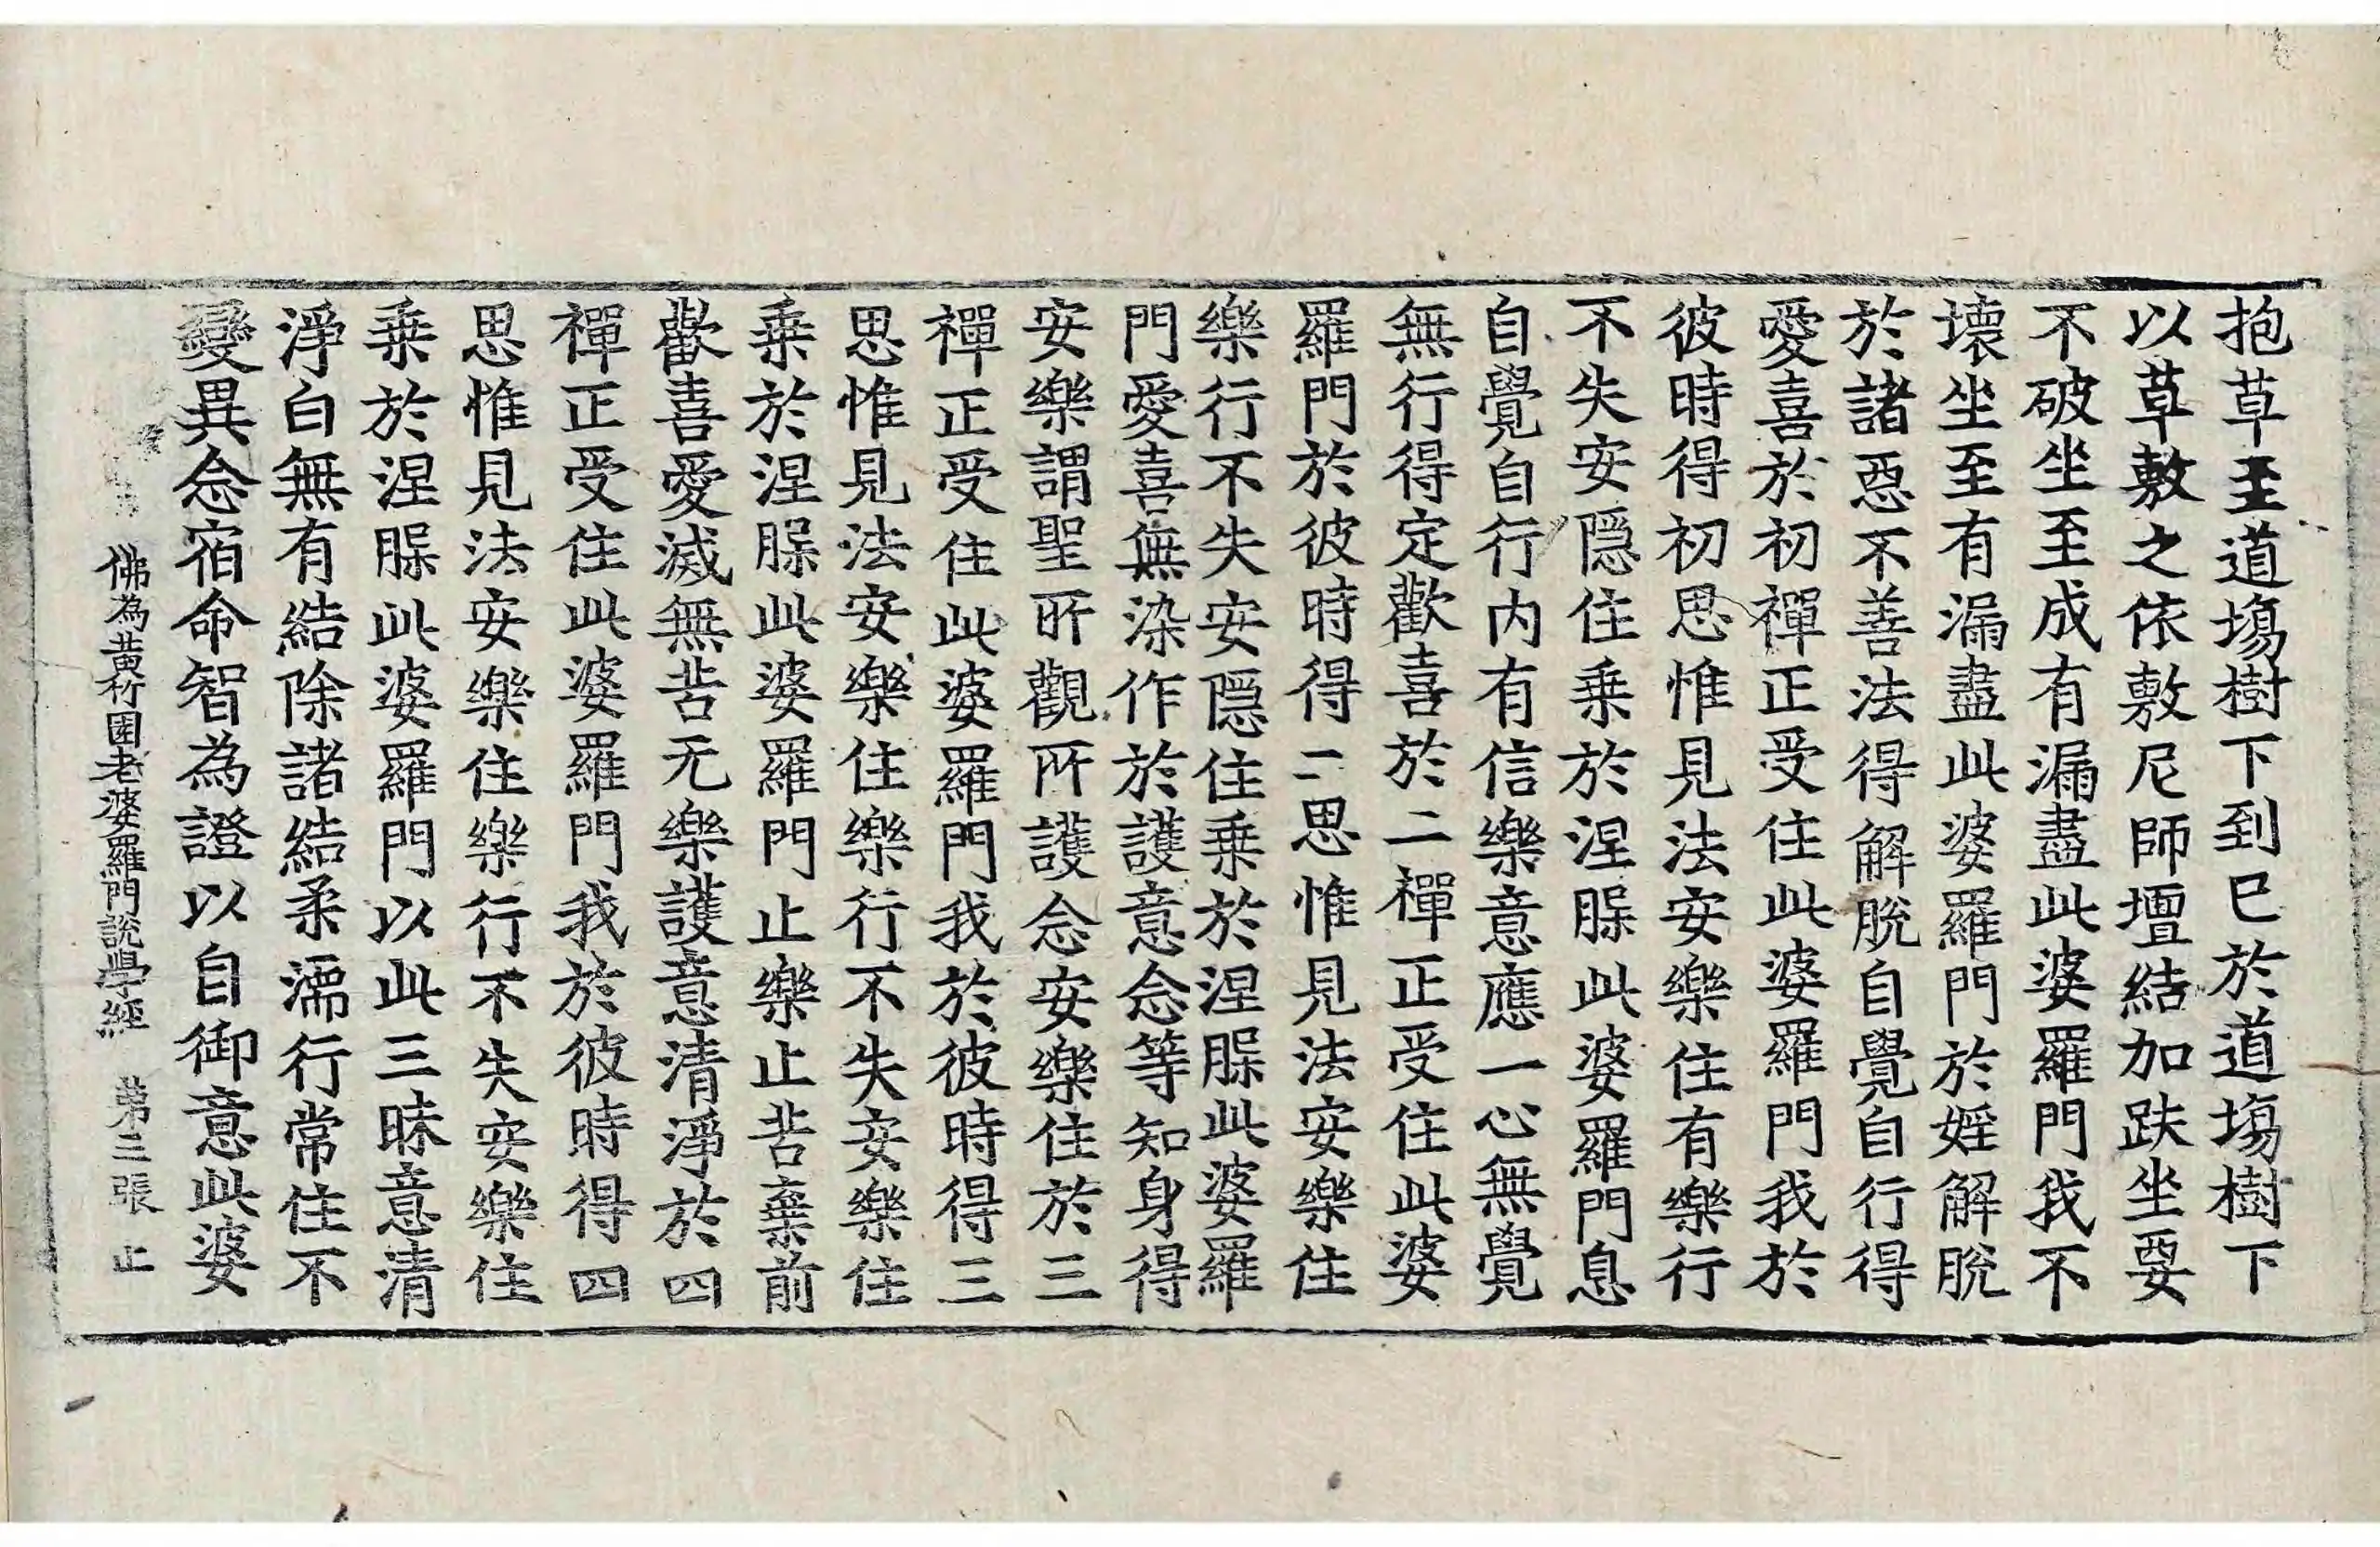 抱草至道塲樹下到已於道塲樹下
以草敷之依敷尼師壇結加趺坐要
不破坐至成有漏盡此婆羅門我不
壞坐至有漏盡此婆羅門於婬解脫
於諸惡不善法得解脫自覺自行得
愛喜於初禪正受住此婆羅門我於
彼時得初思惟見法安樂住有樂行
不失安隱住乗於涅槃此婆羅門息
自覺自行内有信樂意應一心無覺
無行得定歡喜於二禪正受住此婆
羅門於彼時得二思惟見法安樂住
樂行不失安隱住乗於涅槃此婆羅
門愛喜無染作於護意念等知身得
安樂謂聖所觀所護念安樂住於三
禪正受住此婆羅門我於彼時得三
思惟見法安樂住樂行不失安樂住
乗於涅槃此婆羅門止樂止苦棄前
歡喜愛滅無苦无樂護意清淨於四
禪正受住此婆羅門我於彼時得四
思惟見法安樂住樂行不失安樂住
乗於涅槃此婆羅門以此三昧意清
淨白無有結除諸結柔濡行常住不
變異念宿命智為證以自御意此婆
佛為黄竹園老婆羅門說學經 第三張 止